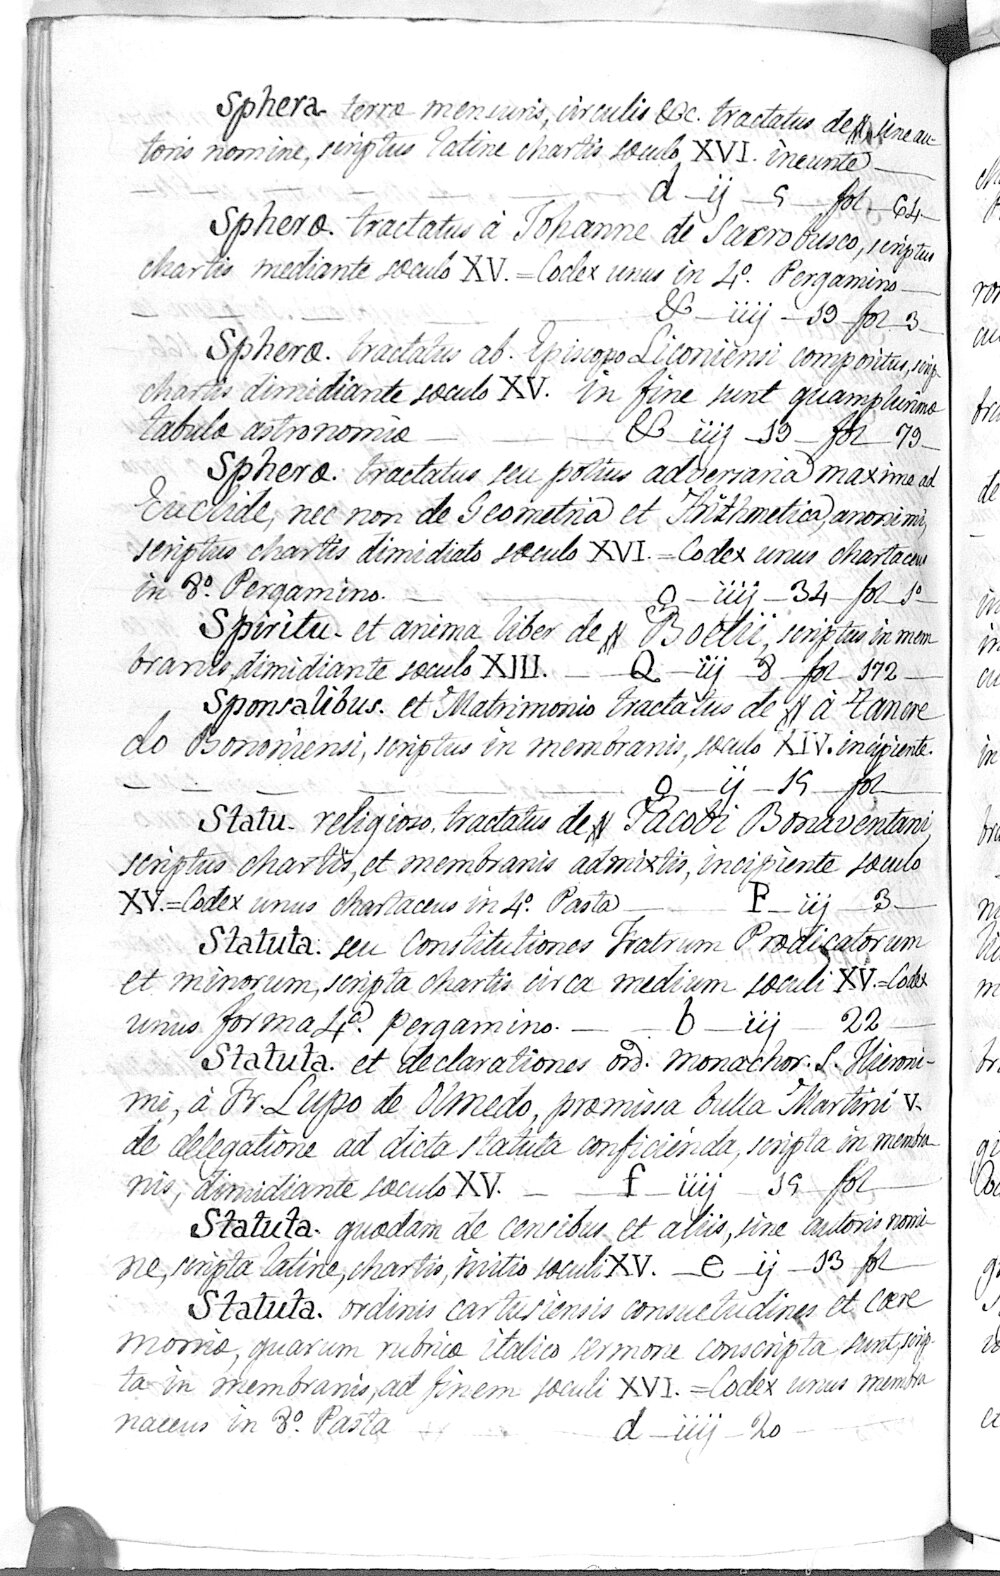 Sphera terræ mensuris, circulis &c. tractatus de sine au-
toris nomine, scriptus latine chartis sæculo XVI. ineunte
d — ij — 5 fol. 64
Spheræ. tractatus à Johanne de Sacrobusco, scriptus
chartis mediante sæculo XV. = Codex unus in 4º. Pergamino
& — iiij — 19 fol 3
Spheræ. tractatus ab. Episcopo Liconiensi compositus, scrip-
chartis dimidiante sæculo XV. in fine sunt quamplurimæ
tabulæ astronomiæ — & — iiij — 19 — fol 79
Spheræ. tractatus seu potius adversaria maxime ad
Euclide, nec non de Geometria et Arithmetica, anonimi,
scriptus chartis dimidiato sæculo XVI. = Codex unus chartaceus
in 8º. Pergamino. — O — iiij — 34 — fol 1º
Spiritu. et anima liber de Boetii, scriptus in mem
branis, dimidiante sæculo XIII. — Q — iij — 8 fol 172
Sponsalibus. et Matrimonio tractatus de à Tancre
do Bononiensi, scriptus in membranis, sæculo XIV. incipiente.
O — ij — 15 fol
Statu. religioso. tractatus de Jacobi Bonaventani,
scriptus chartis, et membranis admixtis, incipiente sæculo
XV. = Codex unus chartaceus in 4º. Pasta — P — iij — 3
Statuta. seu Constitutiones Fratrum Prædicatorum
et minorum, scripta chartis circa medium sæculi XV. = Codex
unus forma 4ª. pergamino. — b — iij — 22
Statuta. et declarationes ord. monachor. S. Hieroni-
mi, à Fr. Lupo de Olmedo, præmissa bulla Martini V.
de delegatione ad dicta statuta conficienda, scripta in membra
nis, dimidiante sæculo XV. — f — iiij — 15 fol
Statuta. quædam de censibus et aliis, sine autoris nomi-
ne, scripta latine, chartis, initio sæculi XV. — e — ij — 13 fol
Statuta. ordinis cartusiensis consuetudines et cære
moniæ, quarum rubricæ italico sermone conscripta sunt, scrip-
ta in membranis, ad finem sæculi XVI. = Codex unus membra
naceus in 8º. Pasta d — iiij — 20